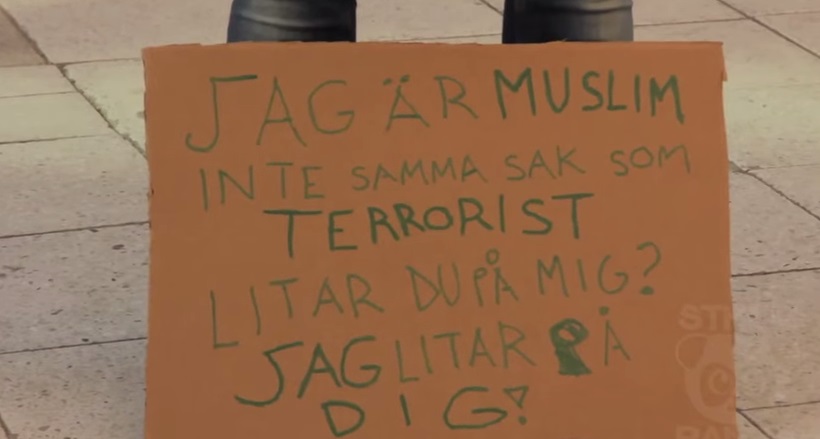 JAG ÄR MUSLIM
INTE SAMMA SAK SOM
TERRORIST
LITAR DU PÅ MIG?
JAG LITAR PÅ
DIG!